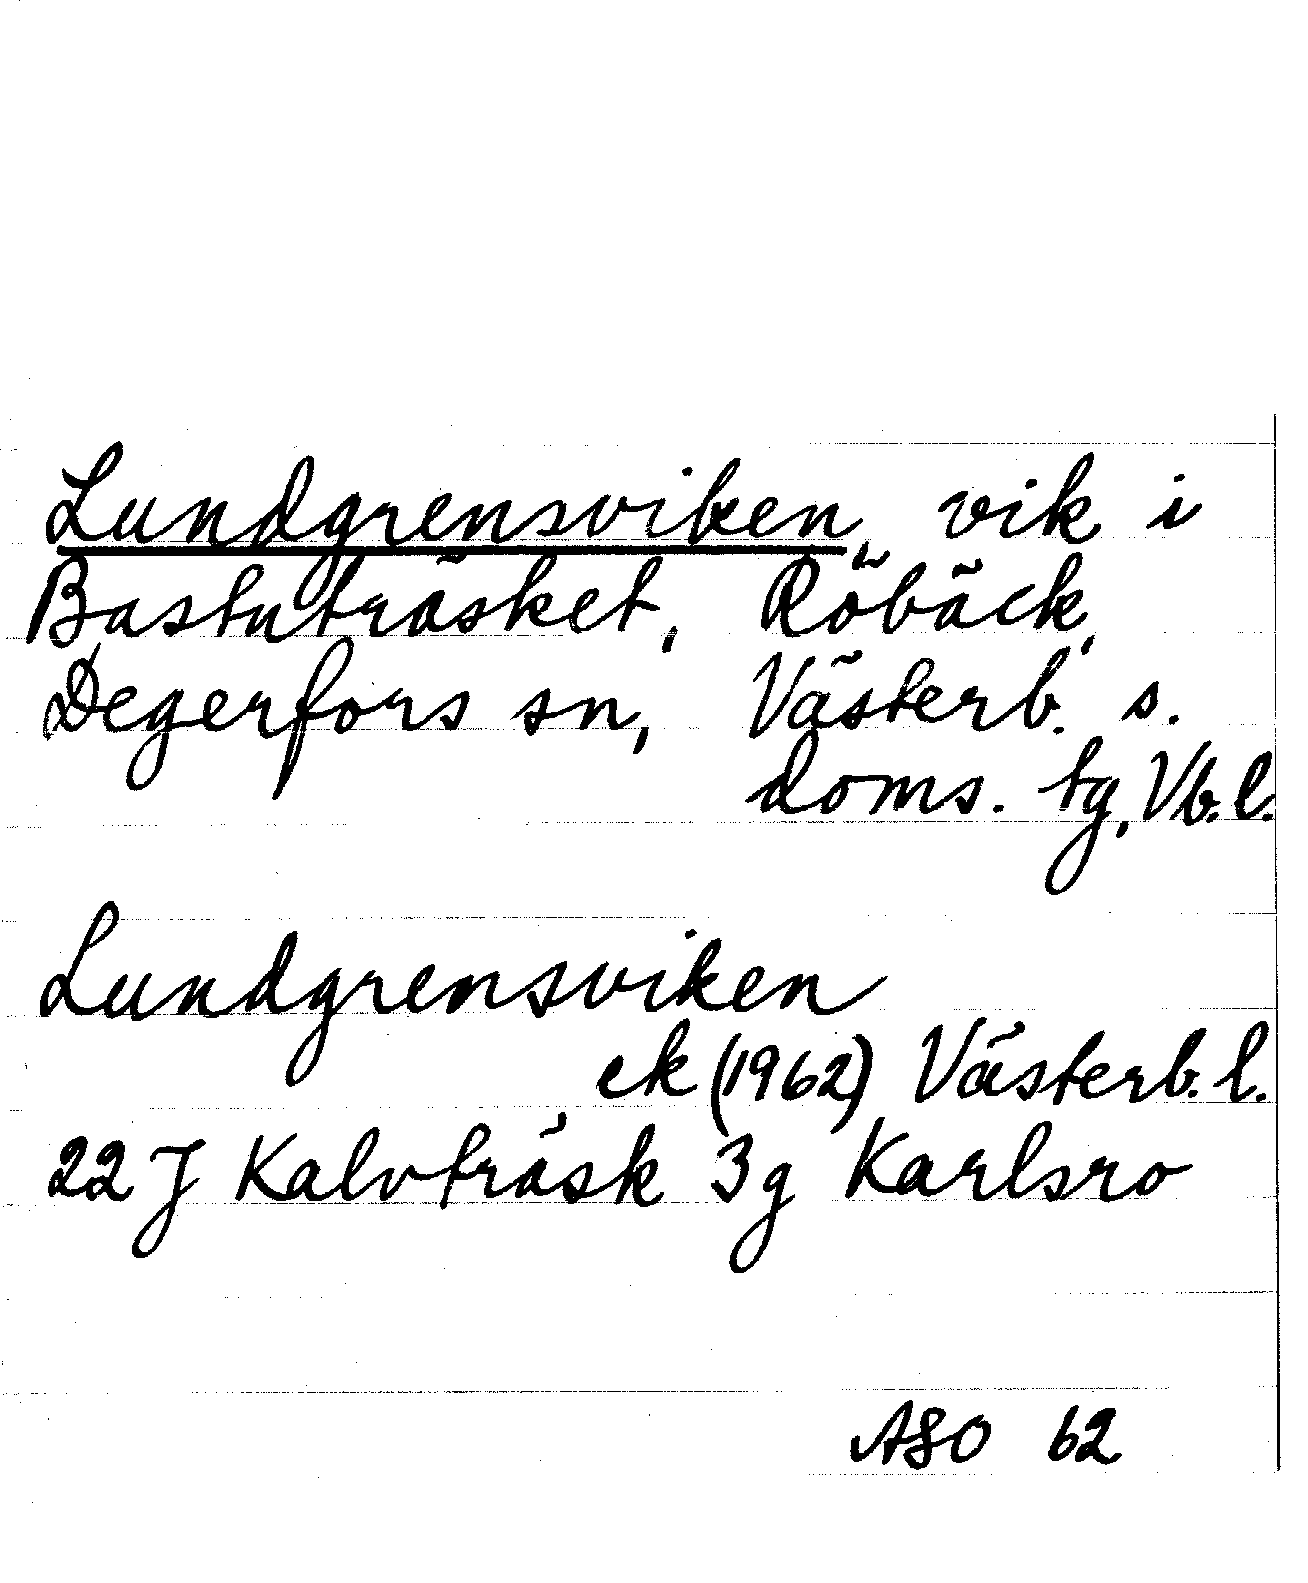 Lundgrensviken, vik i
Bastuträsket, Röbäck,
Degerfors sn, Västerb. s.
doms. tg, Vb.l.
Lundgrensviken
ek (1962) Västerb. l.
22 J Kalvträsk 3g Karlsro
ASO 62